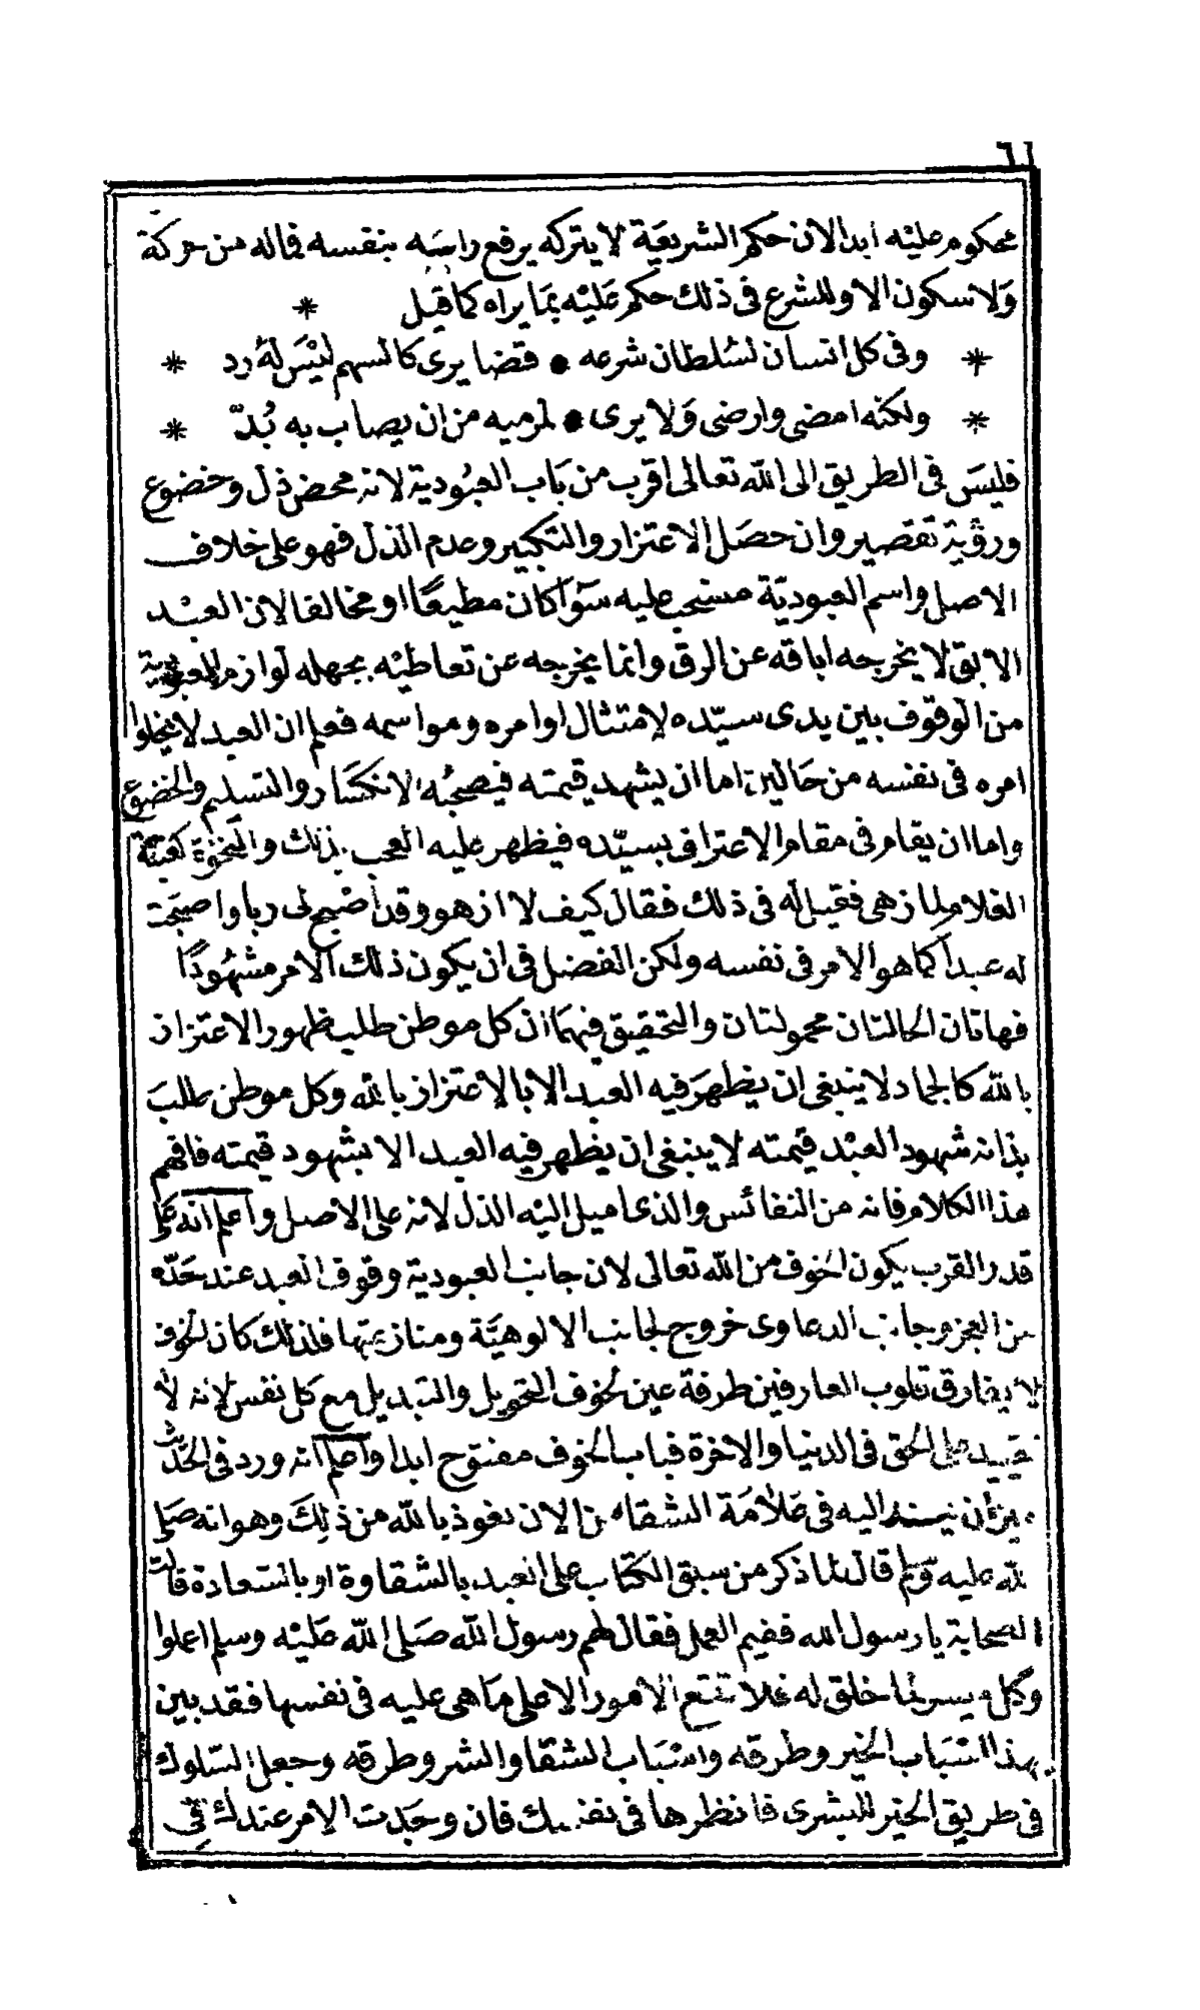 ٦١
محكوم عليه ابدا لان حكم الشريعة لا يتركه يرفع راسه بنفسه فماله من حركة
ولا سكون الا وللشرع فى ذلك حكم عليه بما يراه كما قيل *
* وفى كل انسان لسلطان شرعه • قضا يرى كالسهم ليس له رد *
* ولكنه امضى وارضى ولا يرى • لمرميه من ان يصاب به بدّ *
فليس فى الطريق الى الله تعالى اقرب من باب العبودية لانه محض ذل وخضوع
ورؤية تقصير وان حصل الاعتزار والتكبير وعدم الذل فهو على خلاف
الاصل واسم العبودية منسحب عليه سوآ كان مطيعًا او مخالفا لان العبد
الابق لا يخرجه اباقه عن الرق وانما يخرجه عن تعاطيه بجهله لوازم العبودية
من الوقوف بين يدى سيّده لامتثال اوامره ومواسمه فعلم ان العبد لا يخلوا
امره فى نفسه من حالين اما ان يشهد قيمته فيصحبه الانكسار والتسليم والخضوع
واما ان يقام فى مقام الاعتراف بسيّده فيظهر عليه العجب بذلك والنخوة كعتبة
الغلام لما زهى فقيل له فى ذلك فقال كيف لا ازهو وقد اصبح لى ربا واصبحت
له عبدآ كما هو الامر فى نفسه ولكن الفضل فى ان يكون ذلك الامر مشهودًا
فهاتان الحالتان محمولتان والتحقيق فيهما ان كل موطن طلب ظهور الاعتزاز
بالله كالجهاد لا ينبغى ان يظهر فيه العبد الا بالاعتزاز بالله وكل موطن طلب
بذاته شهود العبد قيمته لا ينبغى ان يظهر فيه العبد الا بشهود قيمته فافهم
هذا الكلام فانه من النفائس والذى اميل اليه الذل لانه على الاصل واعلم انه على
قدر القرب يكون الخوف من الله تعالى لان جانب العبودية وقوف العبد عند حدّه
من العجز وجانب الدعاوى خروج لجانب الالوهيّة ومنازعتها فلذلك كان الخوف
لا يفارق قلوب العارفين طرفة عين لخوف التحويل والتبديل مع كل نفس لانه لا
تقييد على الحق فى الدنيا والاخرة فباب الخوف مفتوح ابدا واعلم انه ورد فى الحديث
ميزان يستند اليه فى علامة الشقاء من الان نعوذ بالله من ذلك وهو انه صلى
الله عليه وسلم قال لما ذكر من سبق الكتاب على العبد بالشقاوة او بالسعادة قالت
الصحابة يا رسول الله ففيم العمل فقال لهم رسول الله صلى الله عليه وسلم اعملوا
وكل ميسر لما خلق له فلا تقع الامور الا على ما هى عليه فى نفسها فقد بين
بهذا اسباب الخير وطرقه واسباب الشقا والشر وطرقه وجعل السلوك
فى طريق الخير للبشرى فانظرها فى نفسك فان وجدت الامر عندك فى